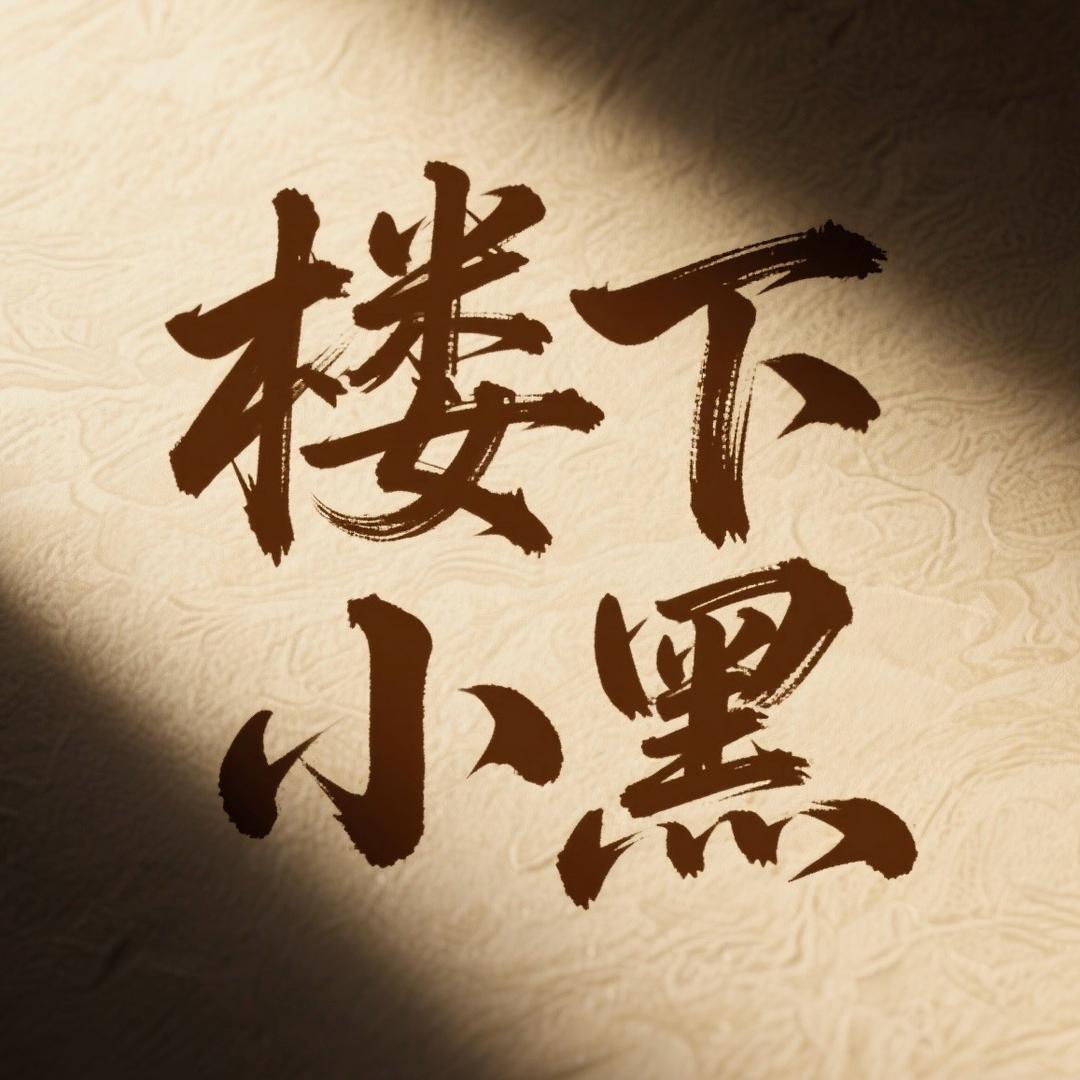 楼下
小黑